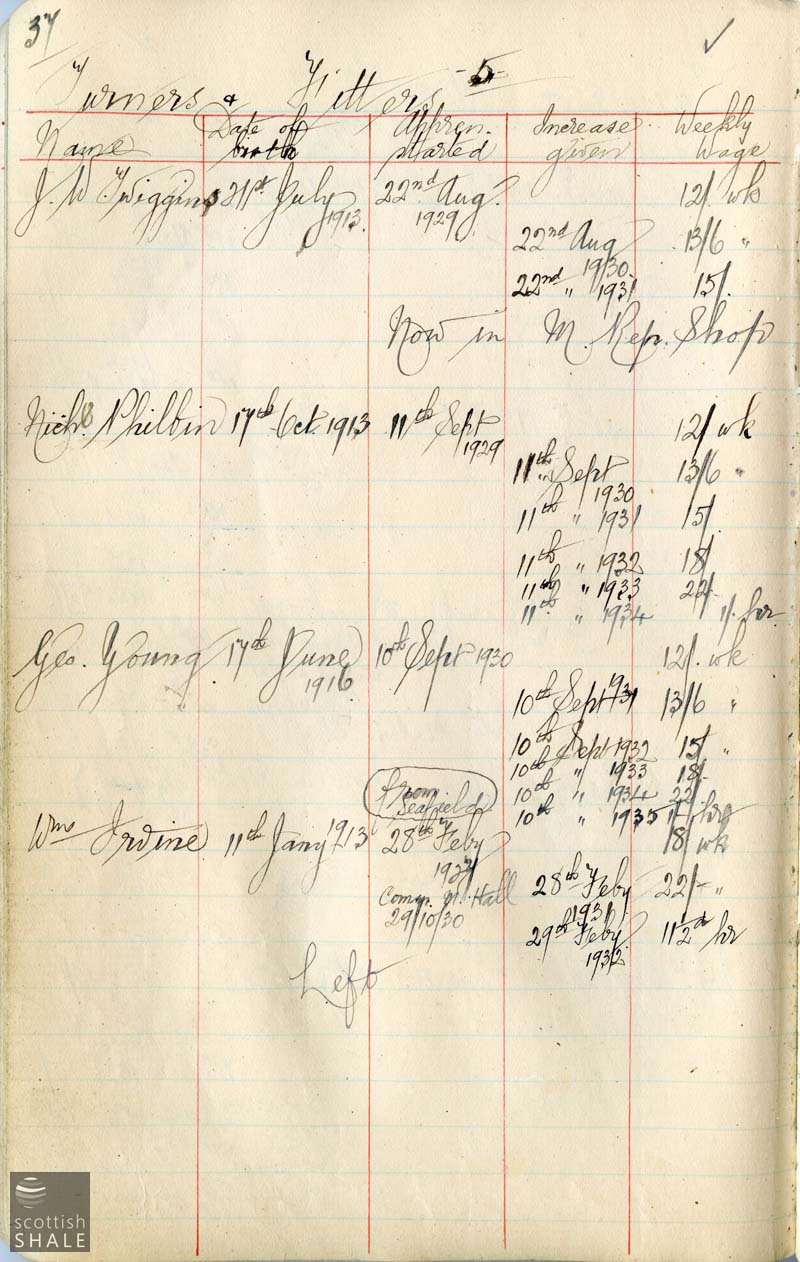 37
Turners & Fitters -5-
Name Date of birth Appren. started Increase given Weekly Wage
J. W. Wiggins 31st July 1913 22nd Aug. 1929 12/. wk
22nd Aug 1930 13/6 "
22nd " 1931 15/.
Now in M. Rep. Shop
Nichs Philbin 17th Oct. 1913 11th Sept 1929 12/ wk
11th Sept 1930 13/6 "
11th " 1931 15/.
11th " 1932 18/
11th " 1933 22/-
11th " 1934 1/. hr
Geo. Young 17th June 1916 10th Sept 1930 12/. wk
10th Sept 1931 13/6 "
10th Sept 1932 15/ "
10th " 1933 18/-
10th " 1934 22/-
10th " 1935
from Seafield
Wm Irvine 11th Jany 1913 28th Feby 18/ wk
Comm. M. Hall 29/10/30
28th Feby 1931 22/- "
29th Feby 1932 11½d hr
Left
scottish
SHALE